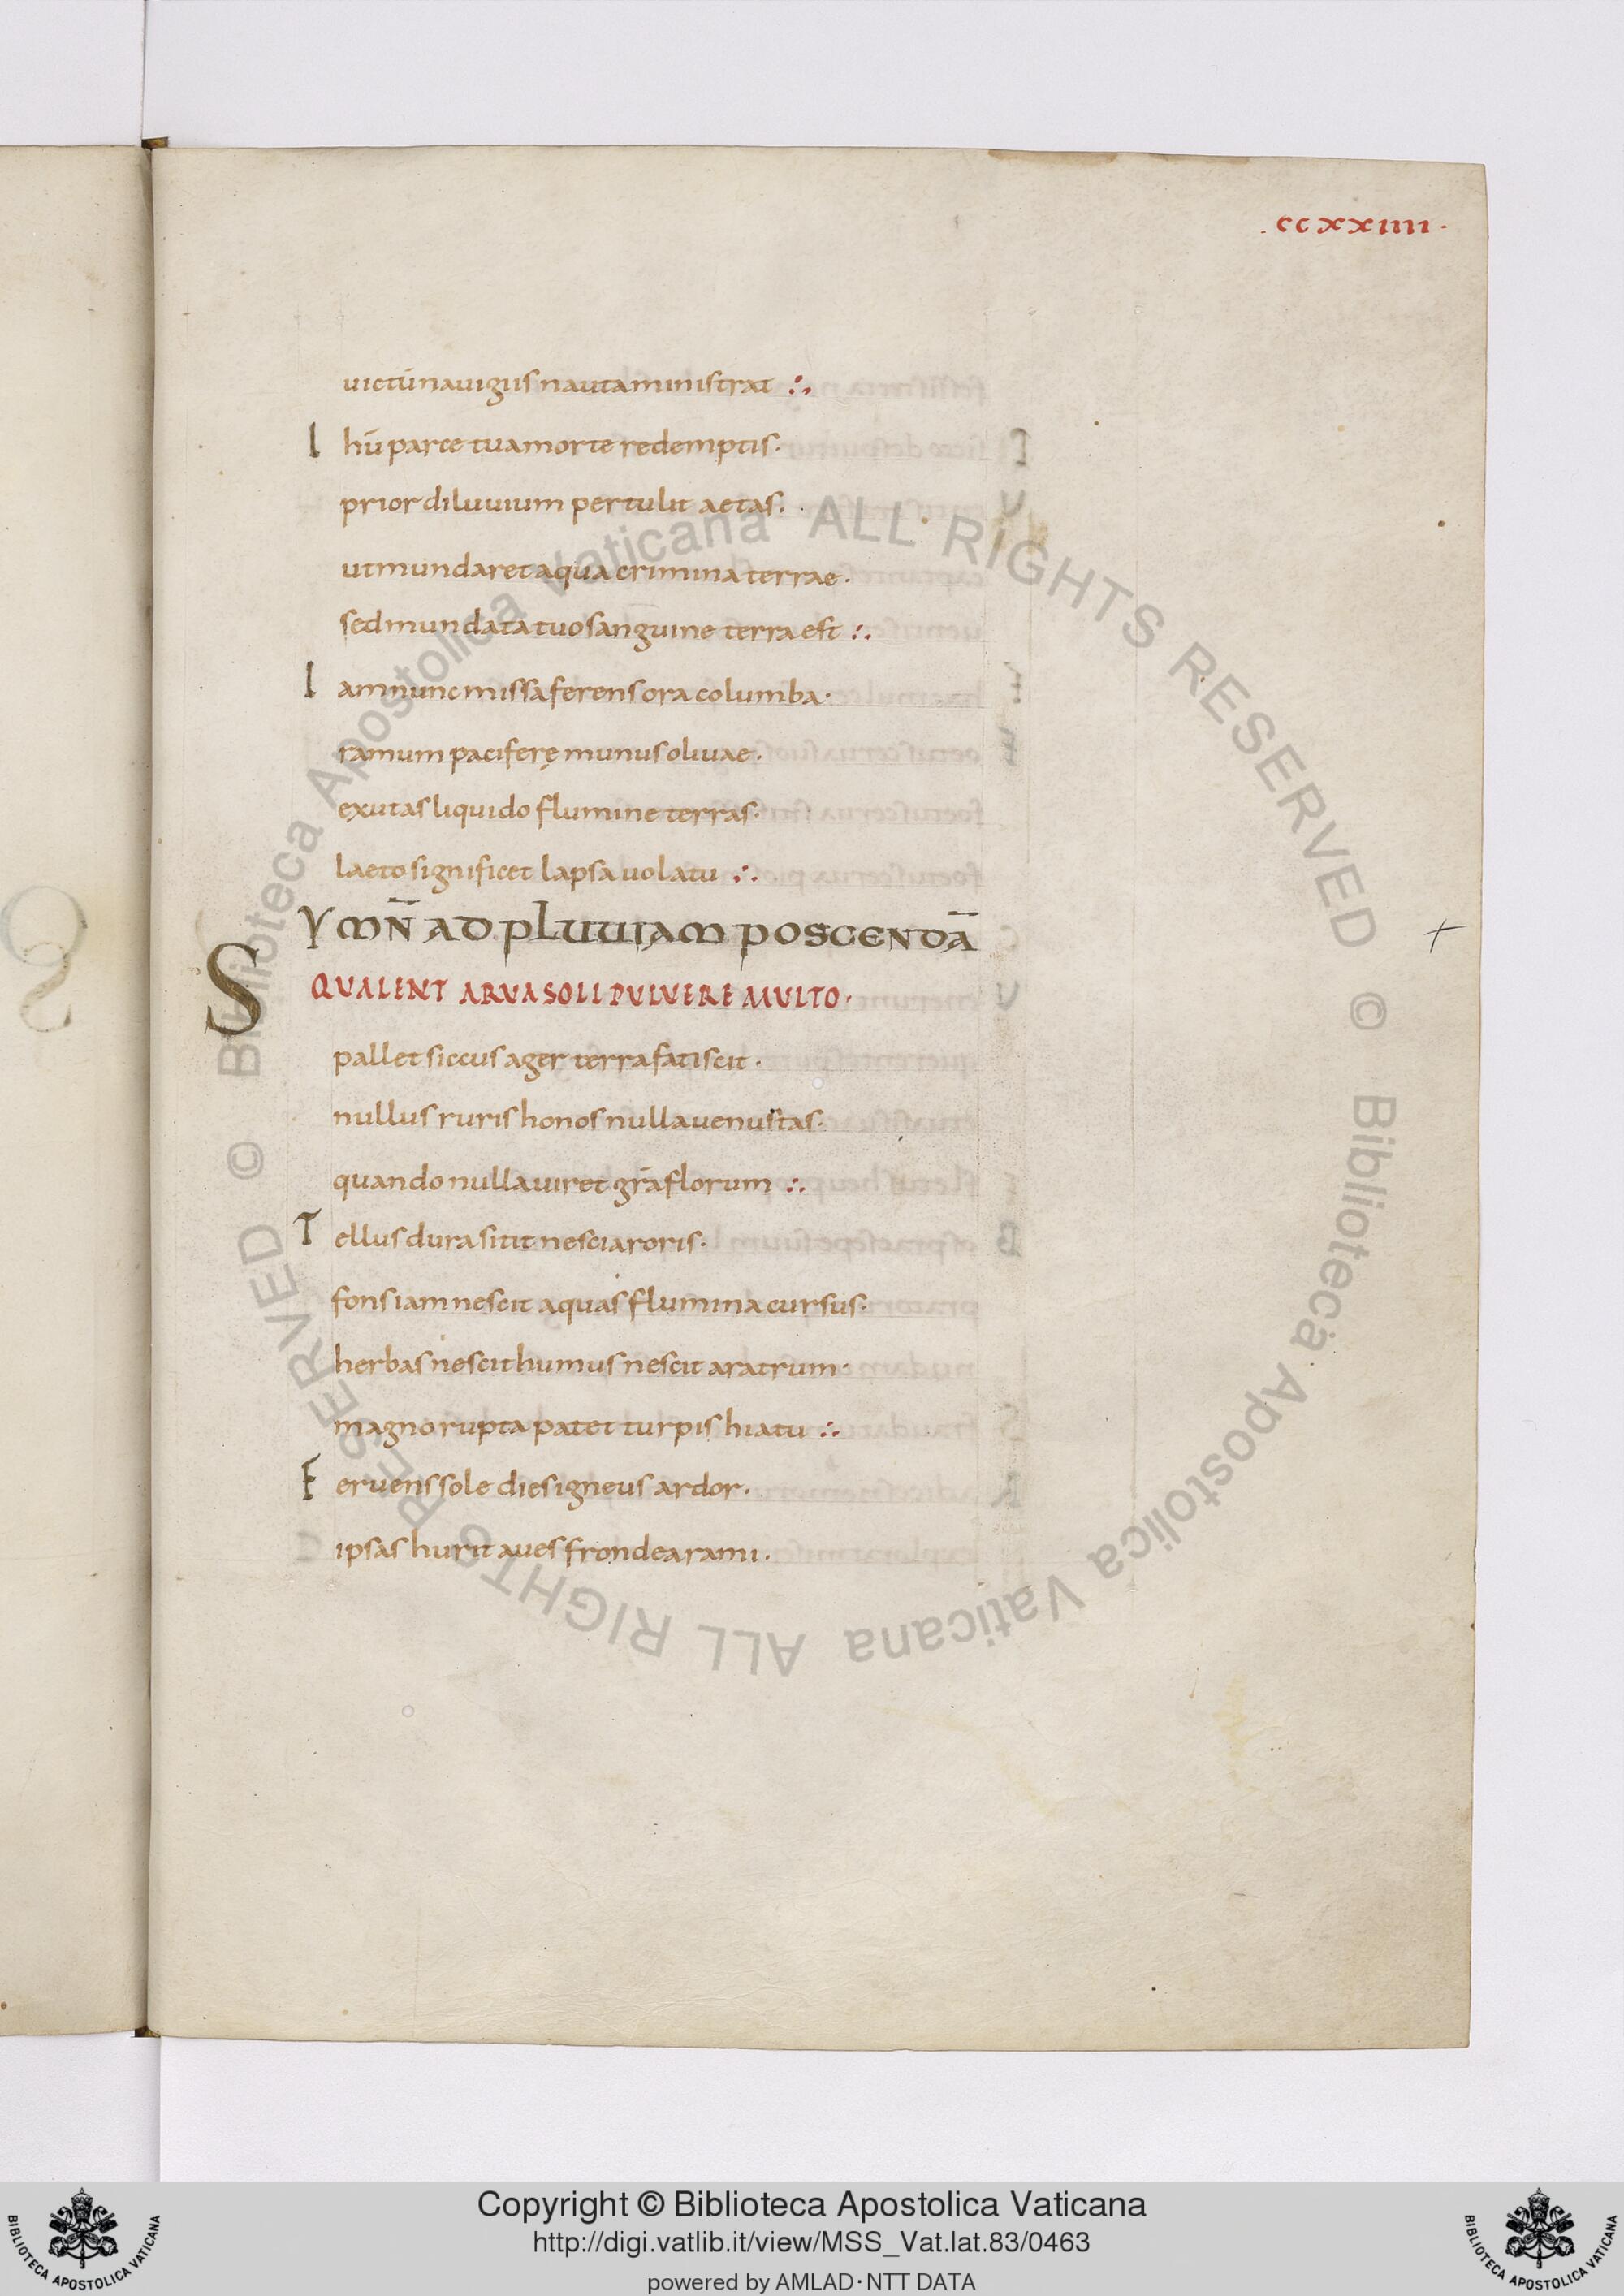 .ccxxiiii.
uictū nauigiis nauta ministrat :.
Ihū parce tua morte redemptis.
prior diluuium pertulit aetas.
ut mundaret aqua crimina terrae.
sed mundata tuo sanguine terra est :.
Iam nunc missa ferens ora columba.
ramum paciferę munus oliuae.
exutas liquido flumine terras.
laeto significet lapsa uolatu :.
YMN̄ AD PLUUIAM POSCENDĀ
SQUALENT ARVA SOLI PULVERE MULTO.
pallet siccus ager terra fatiscit.
nullus ruris honos nulla uenustas.
quando nulla uiret grā florum :.
Tellus dura sitit nescia roris.
fons iam nescit aquas flumina cursus.
herbas nescit humus nescit aratrum.
magno rupta patet turpis hiatu :.
Feruens sole dies igneus ardor.
ipsas hurit aues frondea rami.
© Biblioteca Apostolica Vaticana ALL RIGHTS RESERVED
© Biblioteca Apostolica Vaticana ALL RIGHTS RESERVED
Copyright © Biblioteca Apostolica Vaticana
http://digi.vatlib.it/view/MSS_Vat.lat.83/0463
powered by AMLAD·NTT DATA
BIBLIOTECA APOSTOLICA VATICANA
BIBLIOTECA APOSTOLICA VATICANA